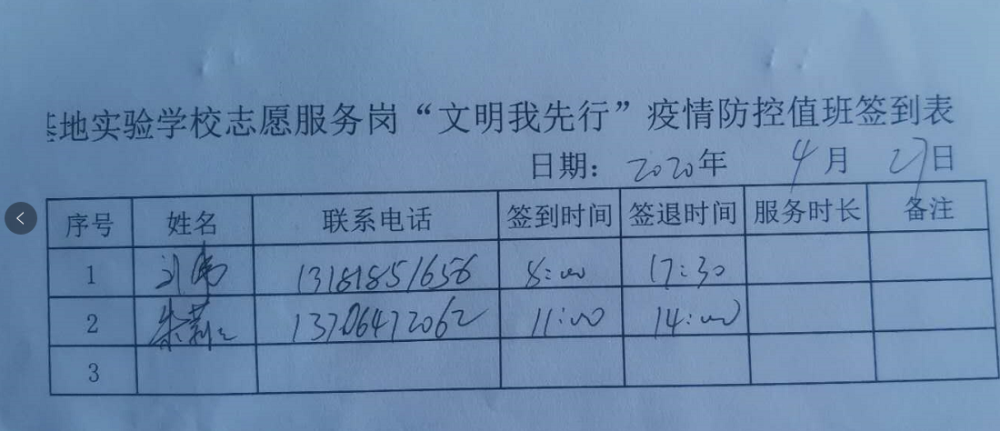 基地实验学校志愿服务岗“文明我先行”疫情防控值班签到表
日期: 2020年 4月 27日
序号 姓名 联系电话 签到时间 签退时间 服务时长 备注
1 刘伟 13181851656 8:00 17:30
2 13706412062 11:00 14:00
3